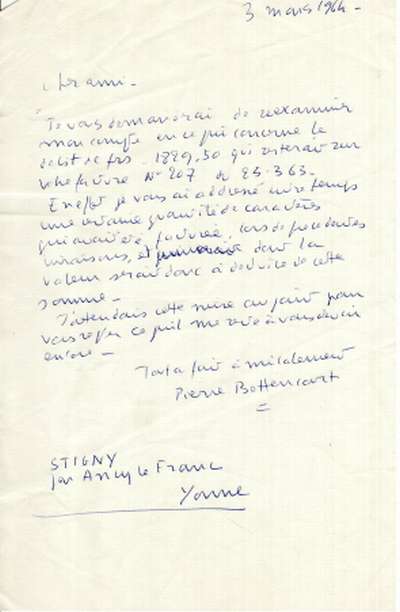 3 mars 1964 -
cher ami -
Je vous demanderai de réexaminer
mon compte en ce qui concerne le
débit de frs 1829,50 qui resterait sur
votre facture N° 207 du 23.3.63.
En effet je vous ai adressé entre temps
une certaine quantité de caractères
qui avait été facturée, lors de précédentes
livraisons, et dont la
valeur serait donc à déduire de cette
somme -
J'attendais cette mise au point pour
vous régler ce qu'il me reste à vous devoir
encore -
Tout à fait amicalement
Pierre Bettencourt
STIGNY
par Ancy le Franc
Yonne